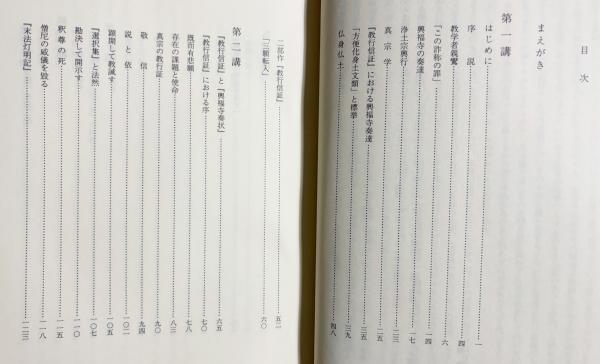 目次
まえがき
第一講
はじめに……一
序説……四
教学者親鸞……六
「この詐称の罪」……一四
興福寺の奏達……一七
浄土宗興行……二三
真宗学……二五
『教行信証』における興福寺奏達……三五
「方便化身土文類」と標挙……三九
仏身仏土……四八
二部作『教行信証』……五二
「三願転入」……六〇
第二講
『教行信証』と『興福寺奏状』……六五
『教行信証』における序……七〇
既而有悲願……七八
存在の課題と使命……八三
真宗の教行証……九〇
敬信……九四
説と依……一〇二
顕開して教誡す……一〇五
『選択集』と法然……一〇七
勘決して開示す……一一〇
釈尊の死……一一五
僧尼の威儀を毀る……一一八
『末法灯明記』……一二三